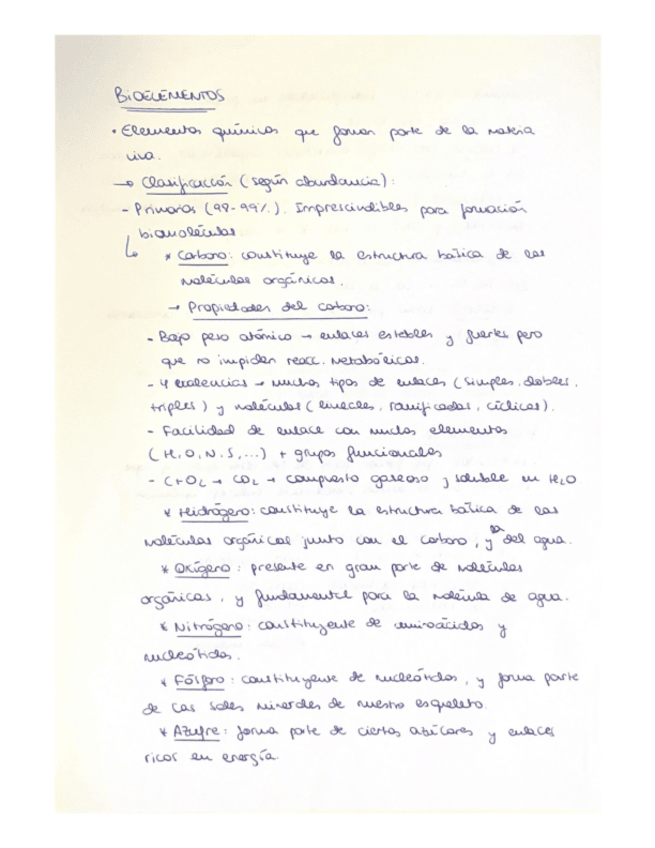 BIOELEMENTOS
• Elementos químicos que forman parte de la materia
viva.
→ Clasificación (según abundancia):
- Primarios (98-99%). Imprescindibles para formación
biomoléculas
* Carbono: constituye la estructura básica de las
moléculas orgánicas.
→ Propiedades del carbono:
- Bajo peso atómico → enlaces estables y fuertes pero
que no impiden reacc. metabólicas.
- 4 valencias → muchos tipos de enlaces (simples, dobles,
triples) y moléculas (lineales, ramificadas, cíclicas).
- Facilidad de enlace con muchos elementos
(H, O, N, S, ...) + grupos funcionales
- C+O₂ → CO₂ → compuesto gaseoso y soluble en H₂O
* Hidrógeno: constituye la estructura básica de las
moléculas orgánicas junto con el carbono, y la del agua.
* Oxígeno: presente en gran parte de moléculas
orgánicas, y fundamental para la molécula de agua.
* Nitrógeno: constituyente de aminoácidos y
nucleótidos.
* Fósforo: constituyente de nucleótidos, y forma parte
de las sales minerales de nuestro esqueleto.
* Azufre: forma parte de ciertos azúcares y enlaces
ricos en energía